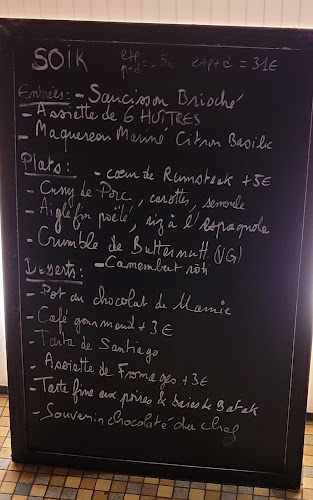 SOIR
e+p
p+d = -5€ e+p+d = 31€
Entrées : - Saucisson Brioché
- Assiette de 6 HUÎTRES
- Maquereau Mariné Citron Basilic
Plats : - cœur de Rumsteak +5€
- Curry de Porc, carottes, semoule
- Aiglefin poêlé, riz à l'espagnole
- Crumble de Butternutt (VG)
Desserts : - Camembert rôti
- Pot au chocolat de Mamie
- Café gourmand + 3€
- Tarta de Santiago
- Assiette de Fromages +3€
- Tarte fine aux poires & baies de Batak
- Souvenir chocolaté du chef